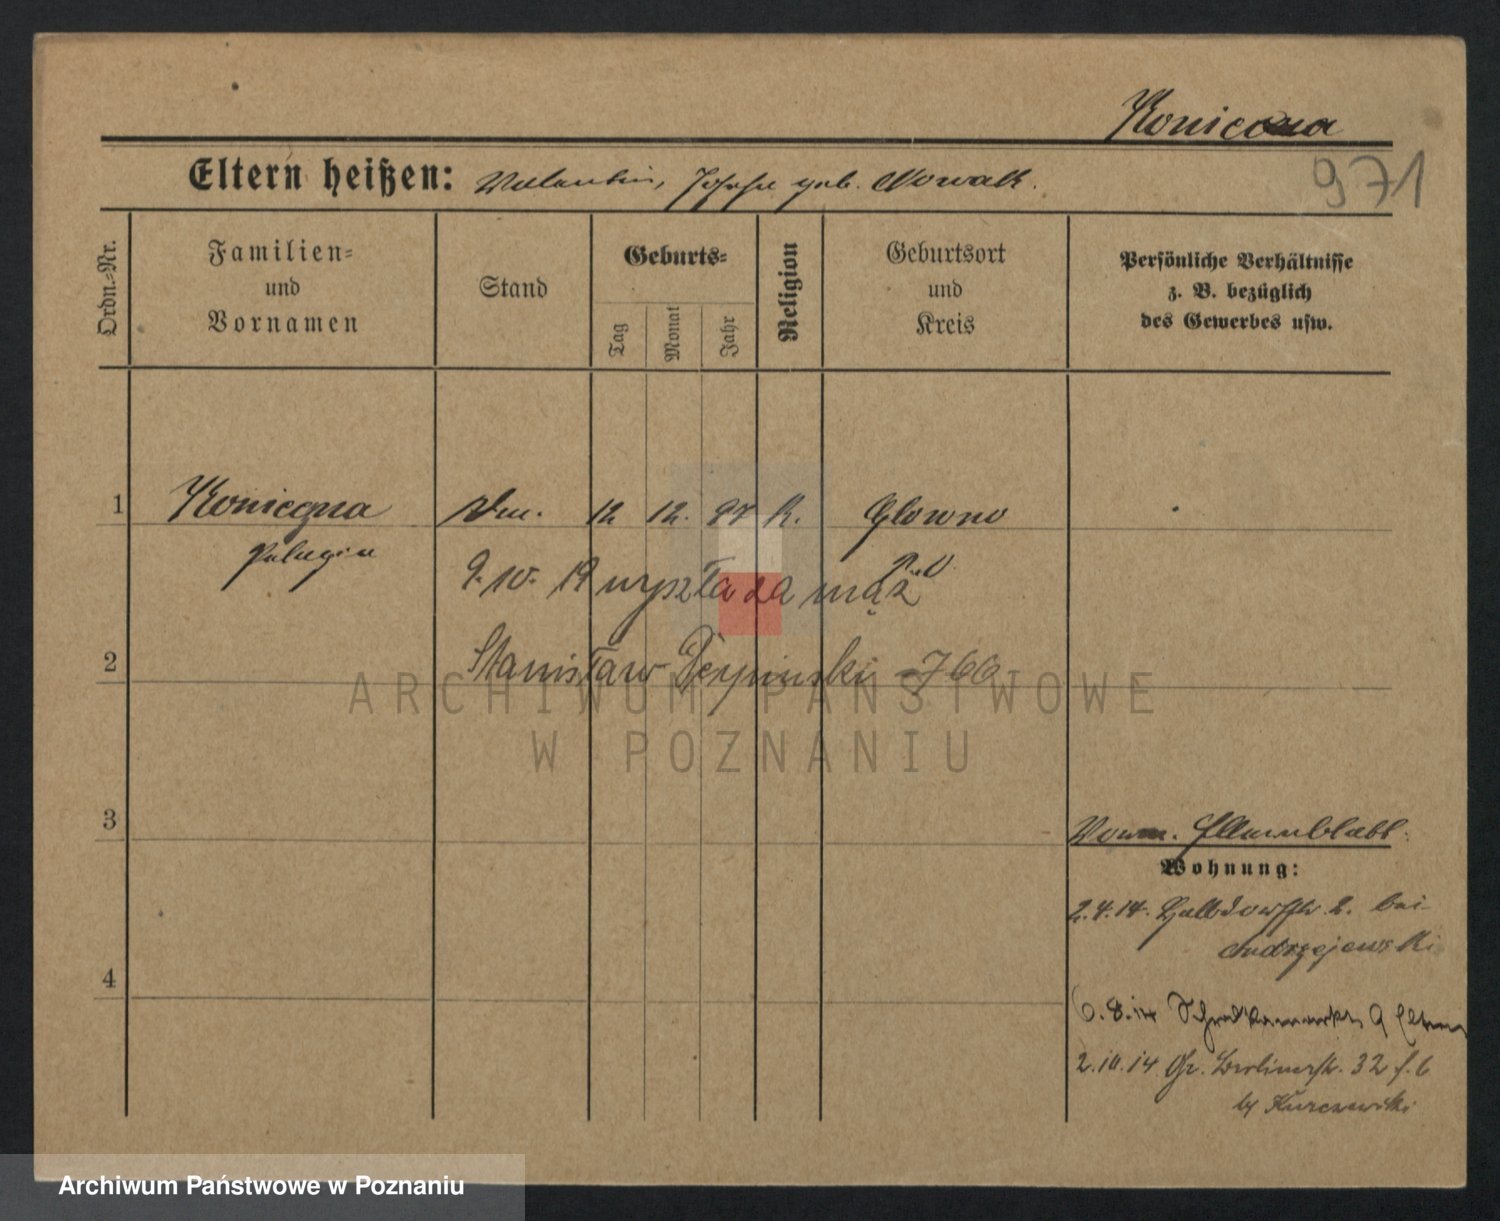 Konieczna
971
Eltern heißen: Valentin, Josefa geb. Nowak.
Ordn.-Nr.
Familien-
und
Vornamen
Stand
Geburts-
Tag
Monat
Jahr
Religion
Geburtsort
und
Kreis
Persönliche Verhältnisse
z. B. bezüglich
des Gewerbes usw.
1 Konieczna 12 12. K. Glowno
Pelagia
P.O.
9. 10. 19 wyszła za mąż
2 Stanisław 766
ARCHIWUM PAŃSTWOWE
W POZNANIU
3
Elternblatt.
Wohnung:
2.4.14. Halbdorfstr. 2. bei
Andrzejewski
4
6.8.14 9 Eltern
2.10.14 Gr. Berlinerstr. 32
Kurczewski
Archiwum Państwowe w Poznaniu